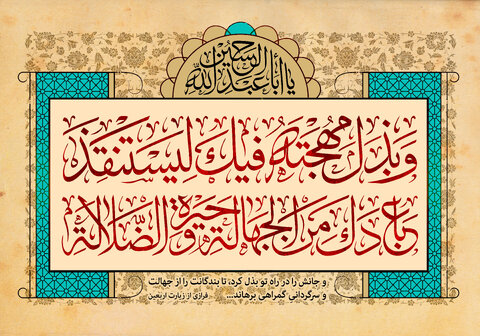 یا أبا عبدالله الحسین
وَبَذَلَ مُهجَتَهُ فیكَ لِیَستَنقِذَ
عِبادَكَ مِنَ الجَهالَةِ وَحَیرَةِ الضَّلالَةِ
و جانش را در راه تو بذل کرد، تا بندگانت را از جهالت
و سرگردانی گمراهی برهاند... فرازی از زیارت اربعین